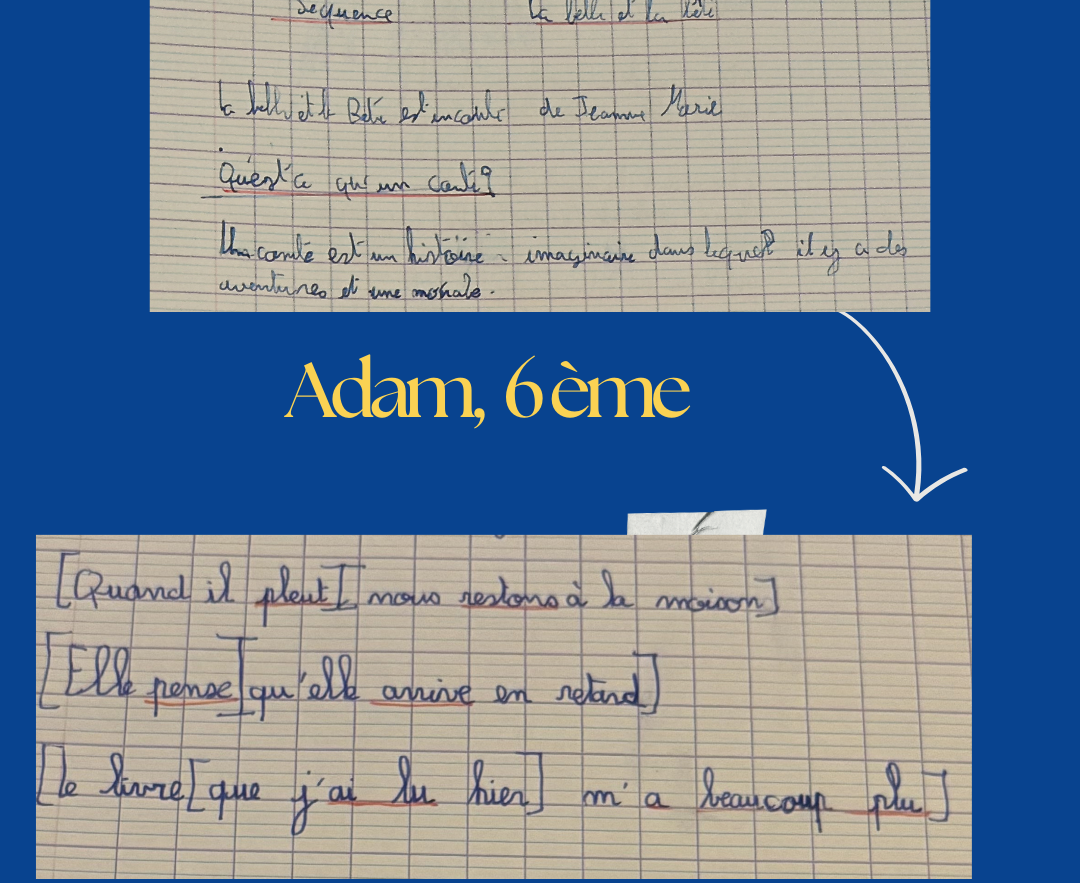 Séquence La belle et la bête
la belle et la Bête est un conte de Jeanne Marie
Qu'est ce qu'un conte?
Un conte est un histoire imaginaire dans lequel il y a des
aventures et une morale.
Adam, 6ème
[Quand il pleut] [nous restons à la maison]
[Elle pense] [qu'elle arrive en retard]
[le livre [que j'ai lu hier] m'a beaucoup plu]